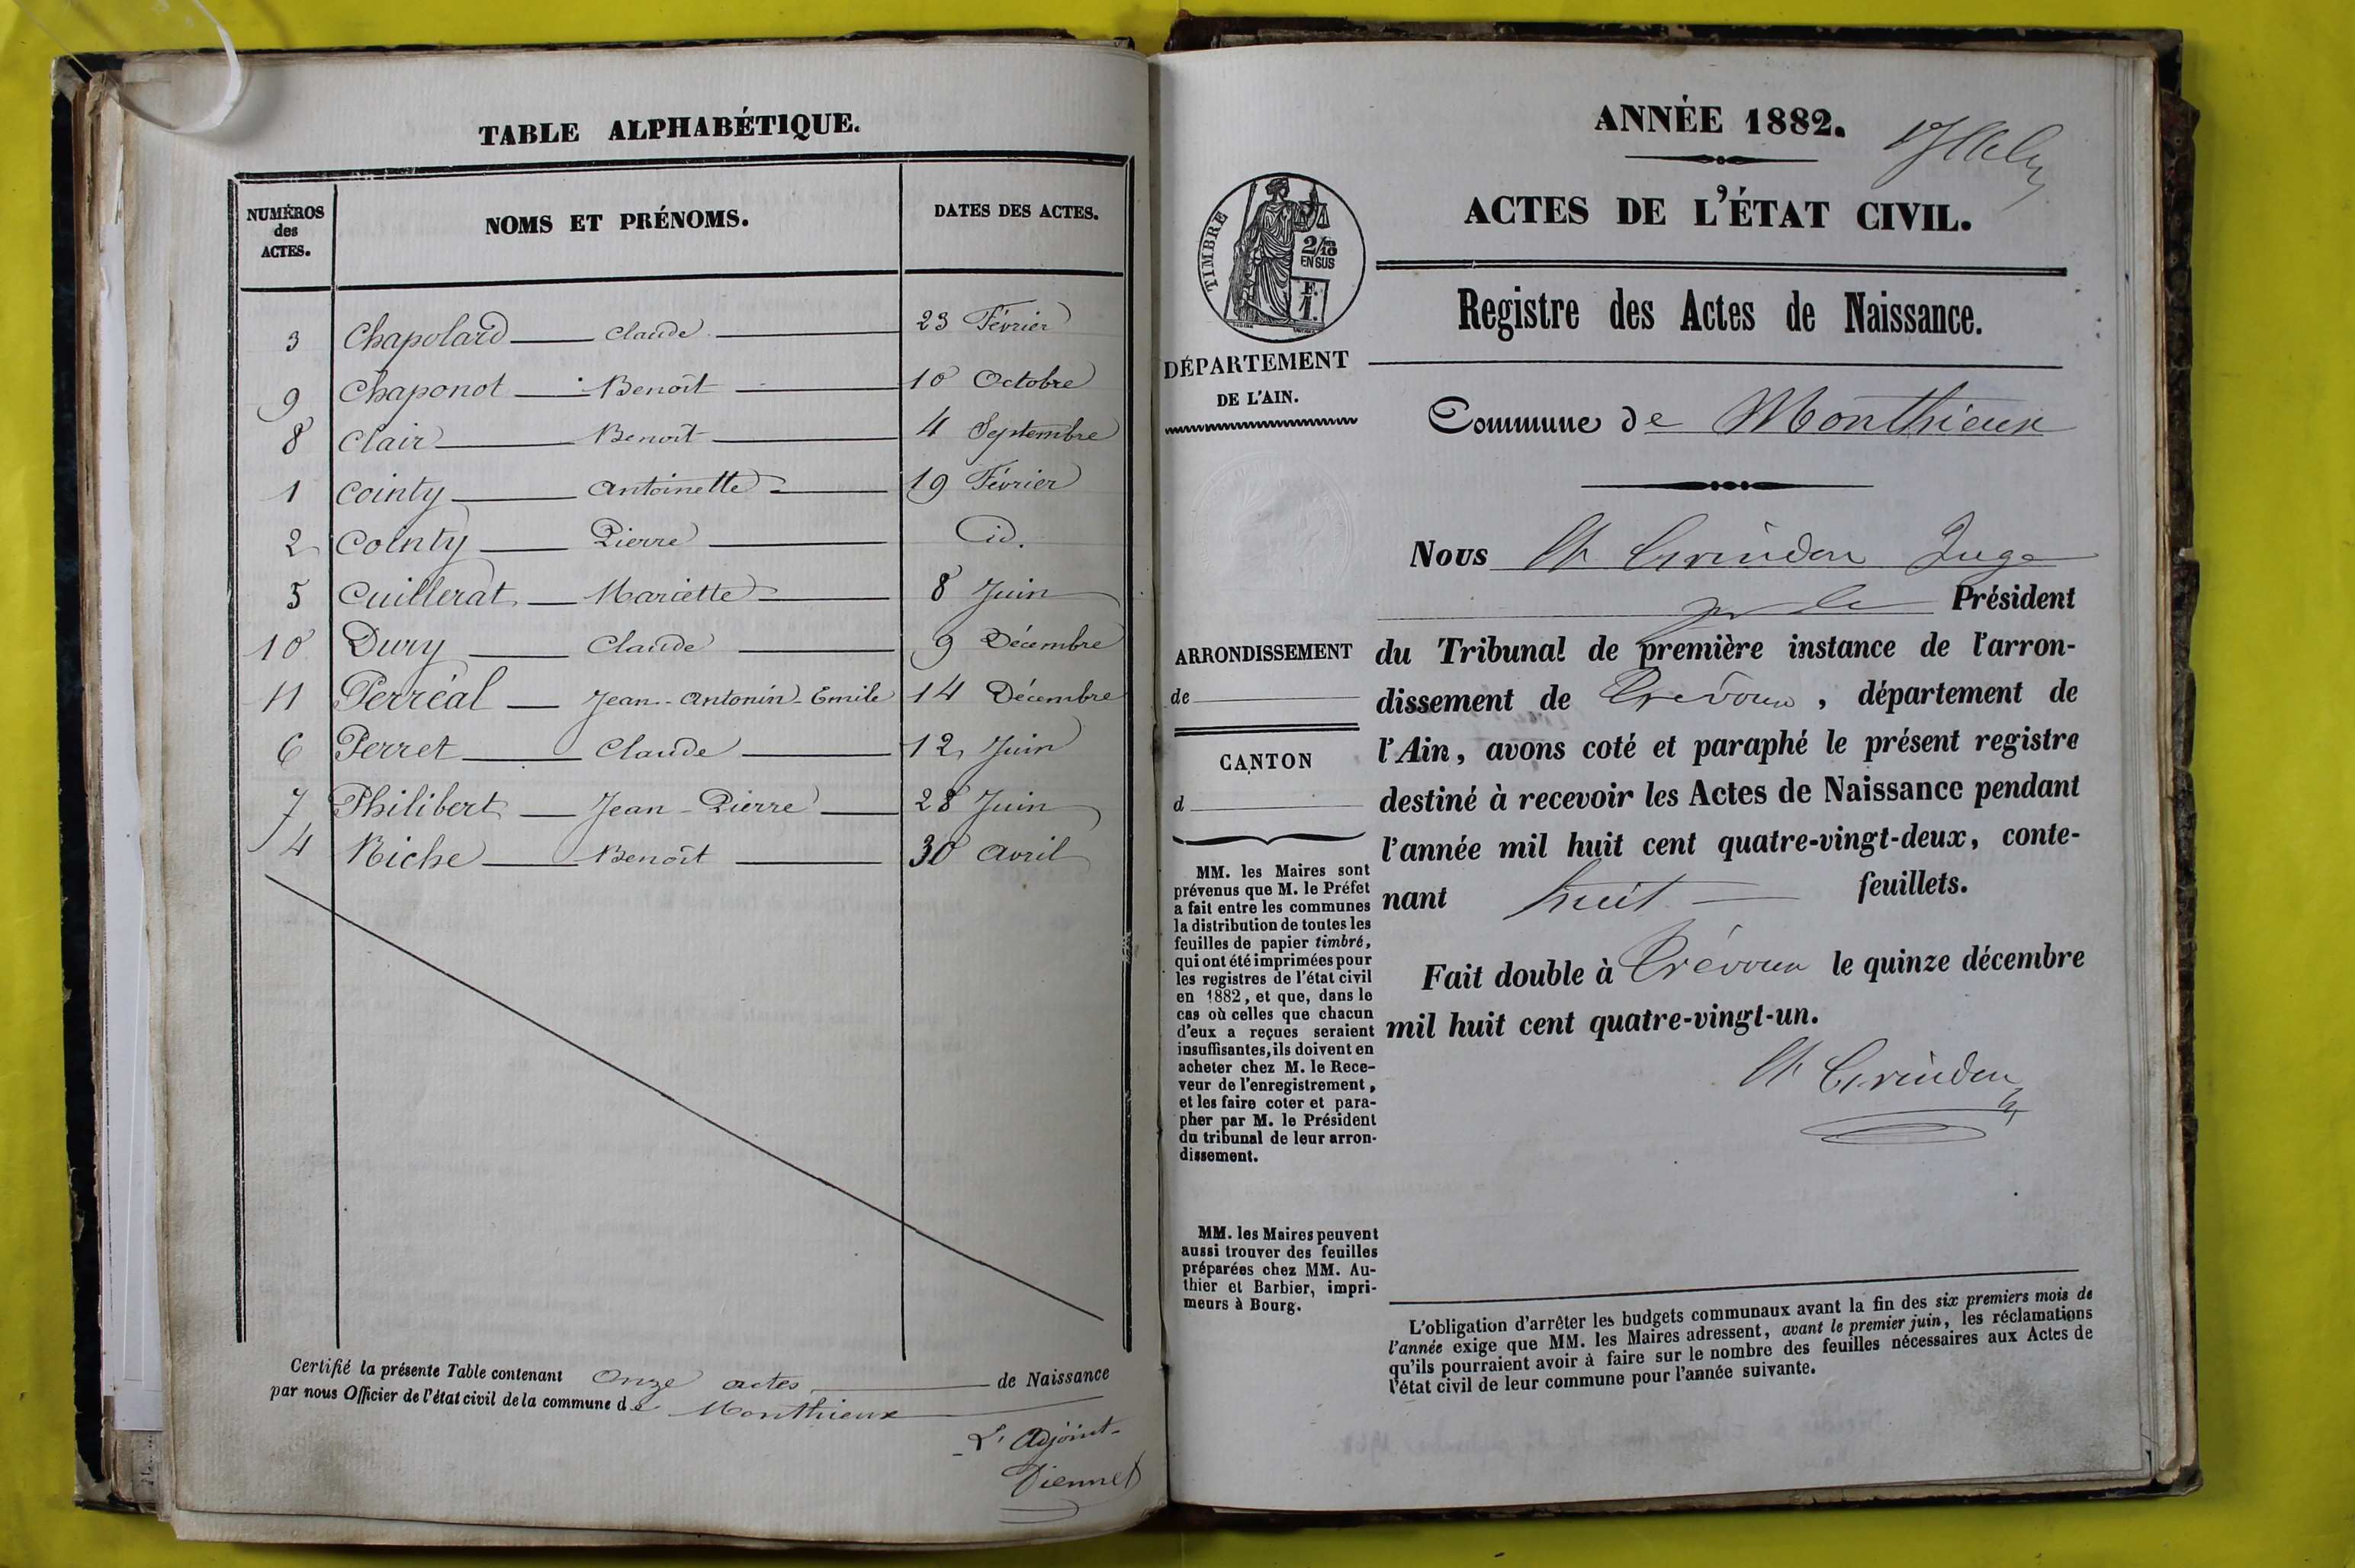 TABLE ALPHABÉTIQUE.
NUMÉROS
des
ACTES.
NOMS ET PRÉNOMS.
DATES DES ACTES.
3 Chapolard Claude 23 Février
9 Chaponot Benoît 10 Octobre
8 Clair Benoît 4 Septembre
1 Cointy Antoinette 19 Février
2 Cointy Pierre id.
5 Cuillerat Mariette 8 Juin
10 Dury Claude 9 Décembre
11 Perréal Jean-Antonin-Emile 14 Décembre
6 Perret Claude 12 Juin
7 Philibert Jean-Pierre 28 Juin
4 Riche Benoît 30 Avril
Certifié la présente Table contenant Onze actes de Naissance
par nous Officier de l'état civil de la commune de Monthieux
L'Adjoint
ANNÉE 1882.
ACTES DE L'ÉTAT CIVIL.
TIMBRE
2/10
EN SUS
F.
1.
Registre des Actes de Naissance.
DÉPARTEMENT
DE L'AIN.
Commune de Monthieux
Nous Juge
Président
ARRONDISSEMENT
de
CANTON
d
du Tribunal de première instance de l'arron-
dissement de Trévoux, département de
l'Ain, avons coté et paraphé le présent registre
destiné à recevoir les Actes de Naissance pendant
l'année mil huit cent quatre-vingt-deux, conte-
nant huit feuillets.
Fait double à Trévoux le quinze décembre
mil huit cent quatre-vingt-un.
MM. les Maires sont
prévenus que M. le Préfet
a fait entre les communes
la distribution de toutes les
feuilles de papier timbré,
qui ont été imprimées pour
les registres de l'état civil
en 1882, et que, dans le
cas où celles que chacun
d'eux a reçues seraient
insuffisantes, ils doivent en
acheter chez M. le Rece-
veur de l'enregistrement,
et les faire coter et para-
pher par M. le Président
du tribunal de leur arron-
dissement.
MM. les Maires peuvent
aussi trouver des feuilles
préparées chez MM. Au-
thier et Barbier, impri-
meurs à Bourg.
L'obligation d'arrêter les budgets communaux avant la fin des six premiers mois de
l'année exige que MM. les Maires adressent, avant le premier juin, les réclamations
qu'ils pourraient avoir à faire sur le nombre des feuilles nécessaires aux Actes de
l'état civil de leur commune pour l'année suivante.